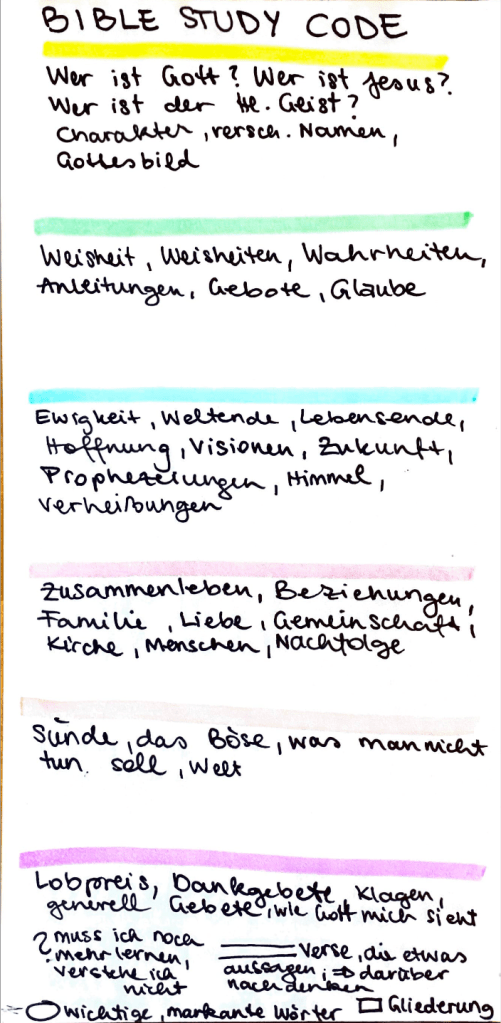 BIBLE STUDY CODE
Wer ist Gott? Wer ist Jesus?
Wer ist der He. Geist?
Charakter, versch. Namen,
Gottesbild
Weisheit, Weisheiten, Wahrheiten,
Anleitungen, Gebote, Glaube
Ewigkeit, Weltende, Lebensende,
Hoffnung, Visionen, Zukunft,
Prophezeiungen, Himmel,
Verheißungen
Zusammenleben, Beziehungen,
Familie, Liebe, Gemeinschaft,
Kirche, Menschen, Nachfolge
Sünde, das Böse, was man nicht
tun soll, Welt
Lobpreis, Dankgebete, Klagen,
generell Gebete, wie Gott mich sieht
? muss ich noch
mehr lernen,
verstehe ich
nicht
Verse, die etwas
aussagen, ⇒ darüber
nachdenken
wichtige, markante Wörter
Gliederung